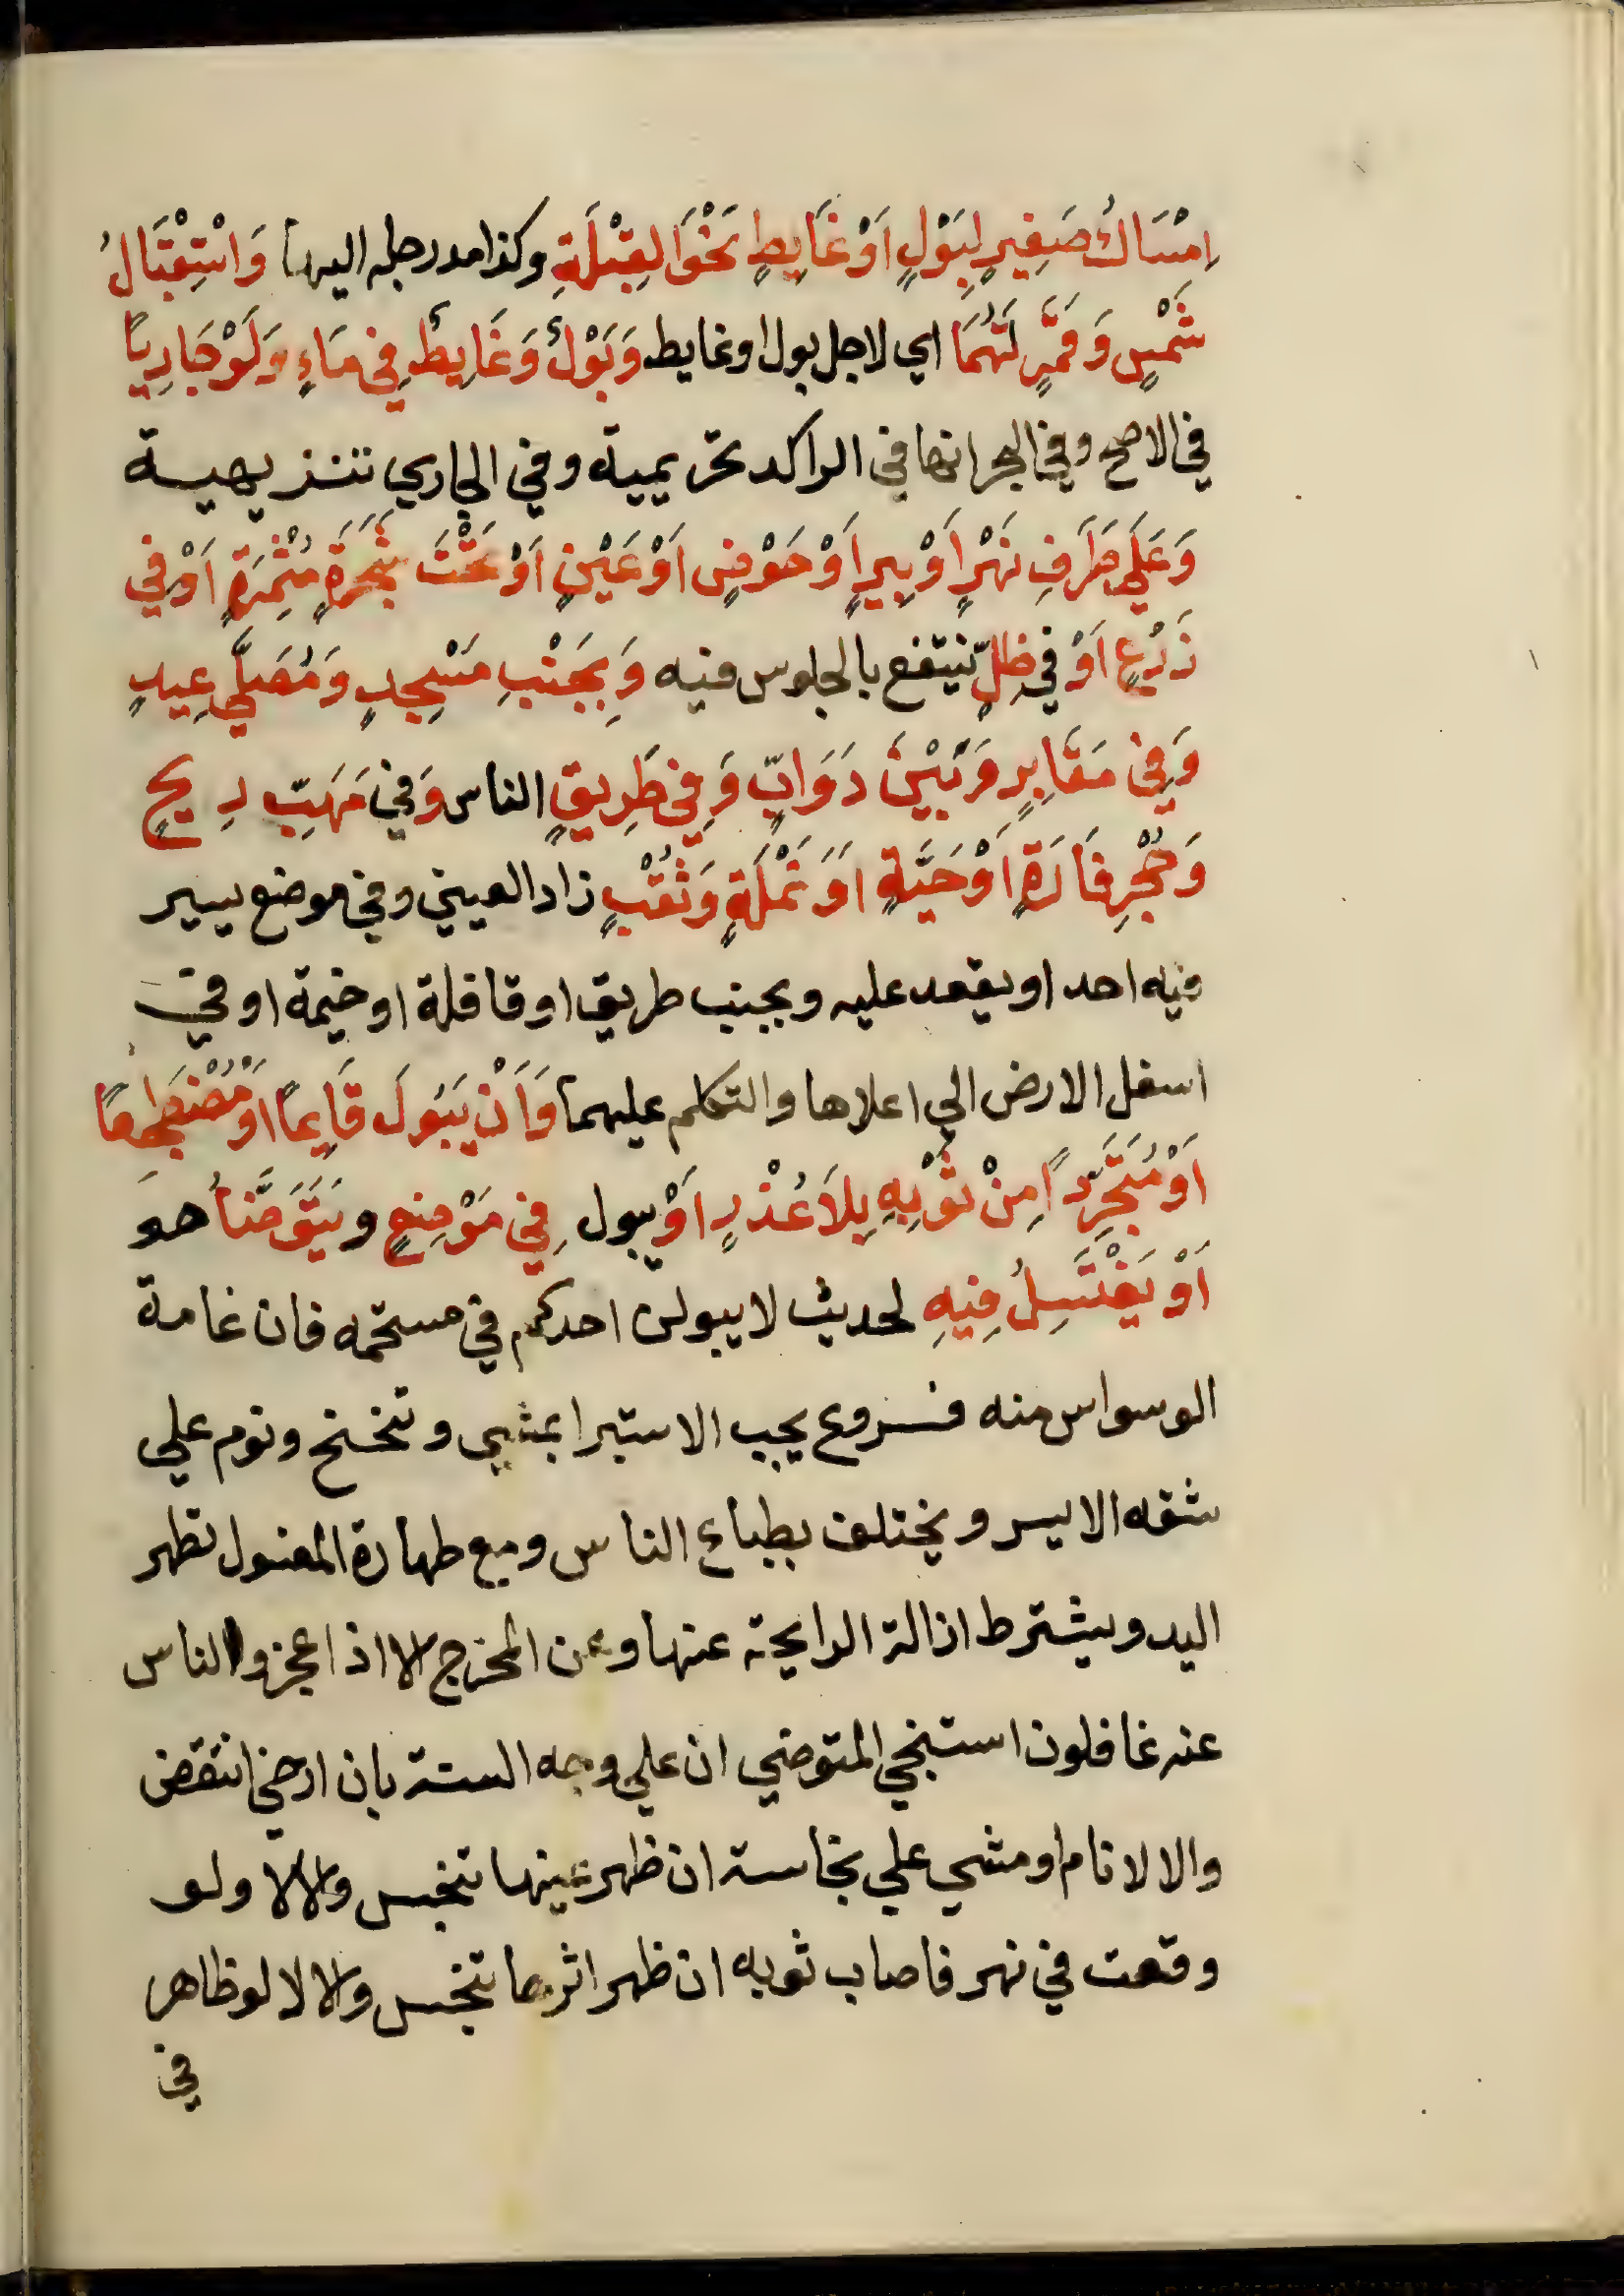 اِمْسَاكُ صَغِيرٍ لِبَوْلٍ اَوْ غَايِطٍ نَحْوَ الْقِبْلَةِ وكذا مد رجله اليها وَاسْتِقْبَالُ
شَمْسٍ وَقَمَرٍ لَهُمَا اي لاجل بول او غايط وَبَوْلٌ وَغَايِطٌ فِي مَاءٍ وَلَوْ جَارِيًا
في الاصح وفي البحر انها في الراكد تحريمية وفي الجاري تنزيهية
وَعَلَي طَرَفِ نَهْرٍ اَوْ بِيرٍ اَوْ حَوْضٍ اَوْ عَيْنٍ اَوْ تَحْتَ شَجَرَةٍ مُثْمِرَةٍ اَوْ فِي
زَرْعٍ اَوْ فِي ظِلٍّ ينتفع بالجلوس فيه وَبِجَنْبِ مَسْجِدٍ وَمُصَلَّي عِيدٍ
وَفِي مَقَابِرٍ وَبَيْنَ دَوَابٍّ وَفِي طَرِيقٍ الناس وَفِي مَهَبِّ رِيحٍ
وَجُحْرِ فَارَةٍ اَوْ حَيَّةٍ اَوْ نَمْلَةٍ وَثُقْبٍ زاد العيني وفي موضع يسير
فيه احد او يقعد عليه وبجنب طريق او قافلة او خيمة او في
اسفل الارض الي اعلاها والتكلم عليهما وَاَنْ يَبُولَ قَايِمًا اَوْ مُضْطَجِعًا
اَوْ مُتَجَرِّدًا مِنْ ثَوْبِهِ بِلَا عُذْرٍ اَوْ يبول فِي مَوْضِعٍ و يَتَوَضَّأُ هو
اَوْ يَغْتَسِلُ فِيهِ لحديث لا يبولن احدكم في مستحمه فان عامة
الوسواس منه فروع يجب الاستبرا بمشي وتنحنح ونوم علي
شقه الايسر ويختلف بطباع الناس ومع طهارة المغسول تطهر
اليد ويشترط ازالة الرايحة عنها وعن المخرج الا اذا عجز والناس
عنه غافلون استنجي المتوضي ان علي وجه السنة بان ارخي انتقض
والا لا نام او مشي علي نجاسة ان ظهر عينها تنجس والا لا ولو
وقعت في نهر فاصاب ثوبه ان ظهر اثرها تنجس والا لا لو ظاهر
في